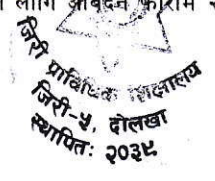 लागि आवेदन फाराम
जिरी प्राविधिक शिक्षालय
जिरी-५, दोलखा
स्थापितः २०३९